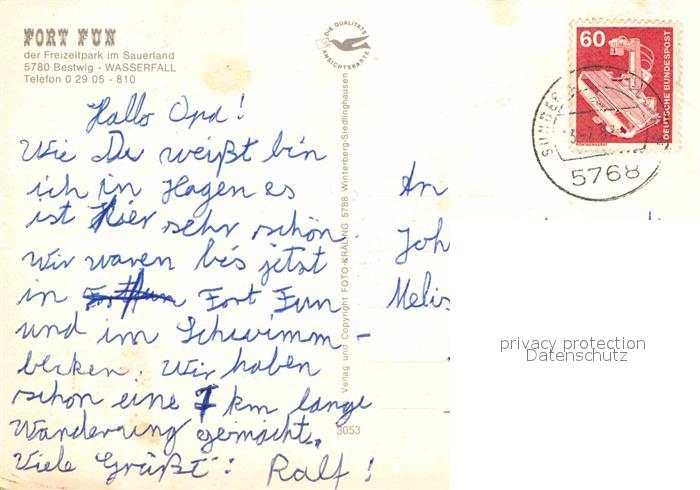 FORT FUN
der Freizeitpark im Sauerland
5780 Bestwig - WASSERFALL
Telefon 0 29 05 - 810
DIE QUALITÄTS
ANSICHTSKARTE
60
DEUTSCHE BUNDESPOST
RÖNTGENGERÄT
SUNDER
5768
Hallo Opa!
Wie Du weißt bin
ich in Hagen es
ist hier sehr schön.
Wir waren bis jetzt
in Fort Fun
und im Schwimm-
becken. Wir haben
schon eine 7 km lange
Wanderung gemacht.
Viele Grüßt: Ralf!
An
Joh
Melis
Verlag und Copyright FOTO-KRÄLING 5788 Winterberg-Siedlinghausen
3053
privacy protection
Datenschutz